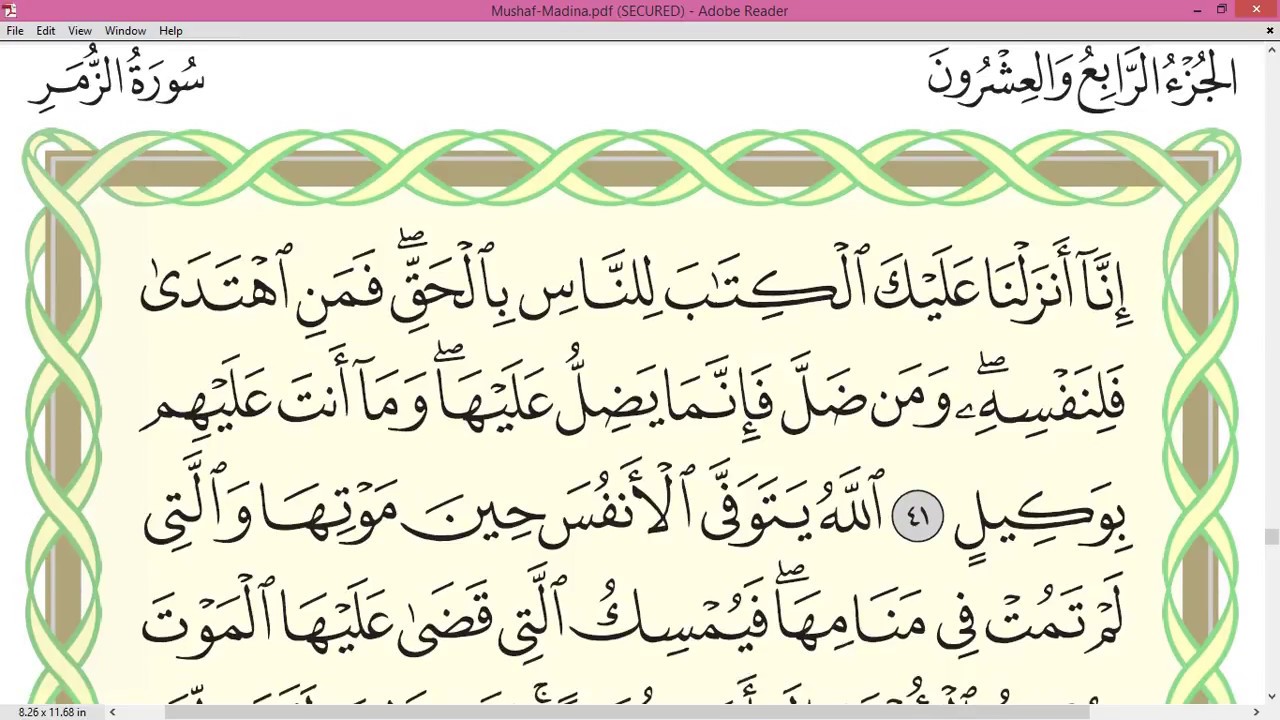 Mushaf-Madina.pdf (SECURED) - Adobe Reader
File Edit View Window Help
الجُزْءُ الرَّابِعُ وَالعِشْرُونَ سُورَةُ الزُّمَرِ
إِنَّآ أَنزَلْنَا عَلَيْكَ ٱلْكِتَٰبَ لِلنَّاسِ بِٱلْحَقِّۖ فَمَنِ ٱهْتَدَىٰ
فَلِنَفْسِهِۦۖ وَمَن ضَلَّ فَإِنَّمَا يَضِلُّ عَلَيْهَاۖ وَمَآ أَنتَ عَلَيْهِم
بِوَكِيلٍ ٤١ ٱللَّهُ يَتَوَفَّى ٱلْأَنفُسَ حِينَ مَوْتِهَا وَٱلَّتِى
لَمْ تَمُتْ فِى مَنَامِهَاۖ فَيُمْسِكُ ٱلَّتِى قَضَىٰ عَلَيْهَا ٱلْمَوْتَ
8.26 x 11.68 in